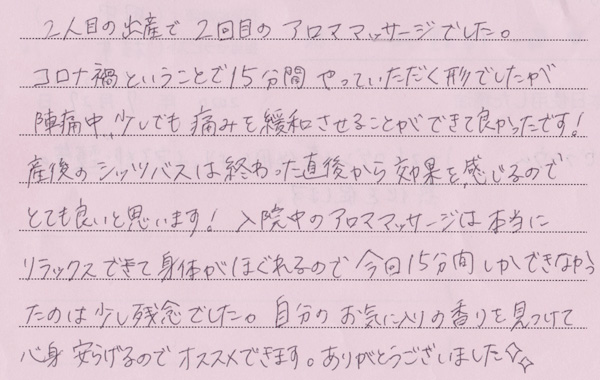 2人目の出産で2回目のアロママッサージでした。
コロナ禍ということで15分間やっていただく形でしたが
陣痛中、少しでも痛みを緩和させることができて良かったです!
産後のシッツバスは終わった直後から効果を感じるので
とても良いと思います! 入院中のアロママッサージは本当に
リラックスできて身体がほぐれるので今回15分間しかできなかっ
たのは少し残念でした。自分のお気に入りの香りを見つけて
心身安らげるのでオススメできます。ありがとうございました✧✧